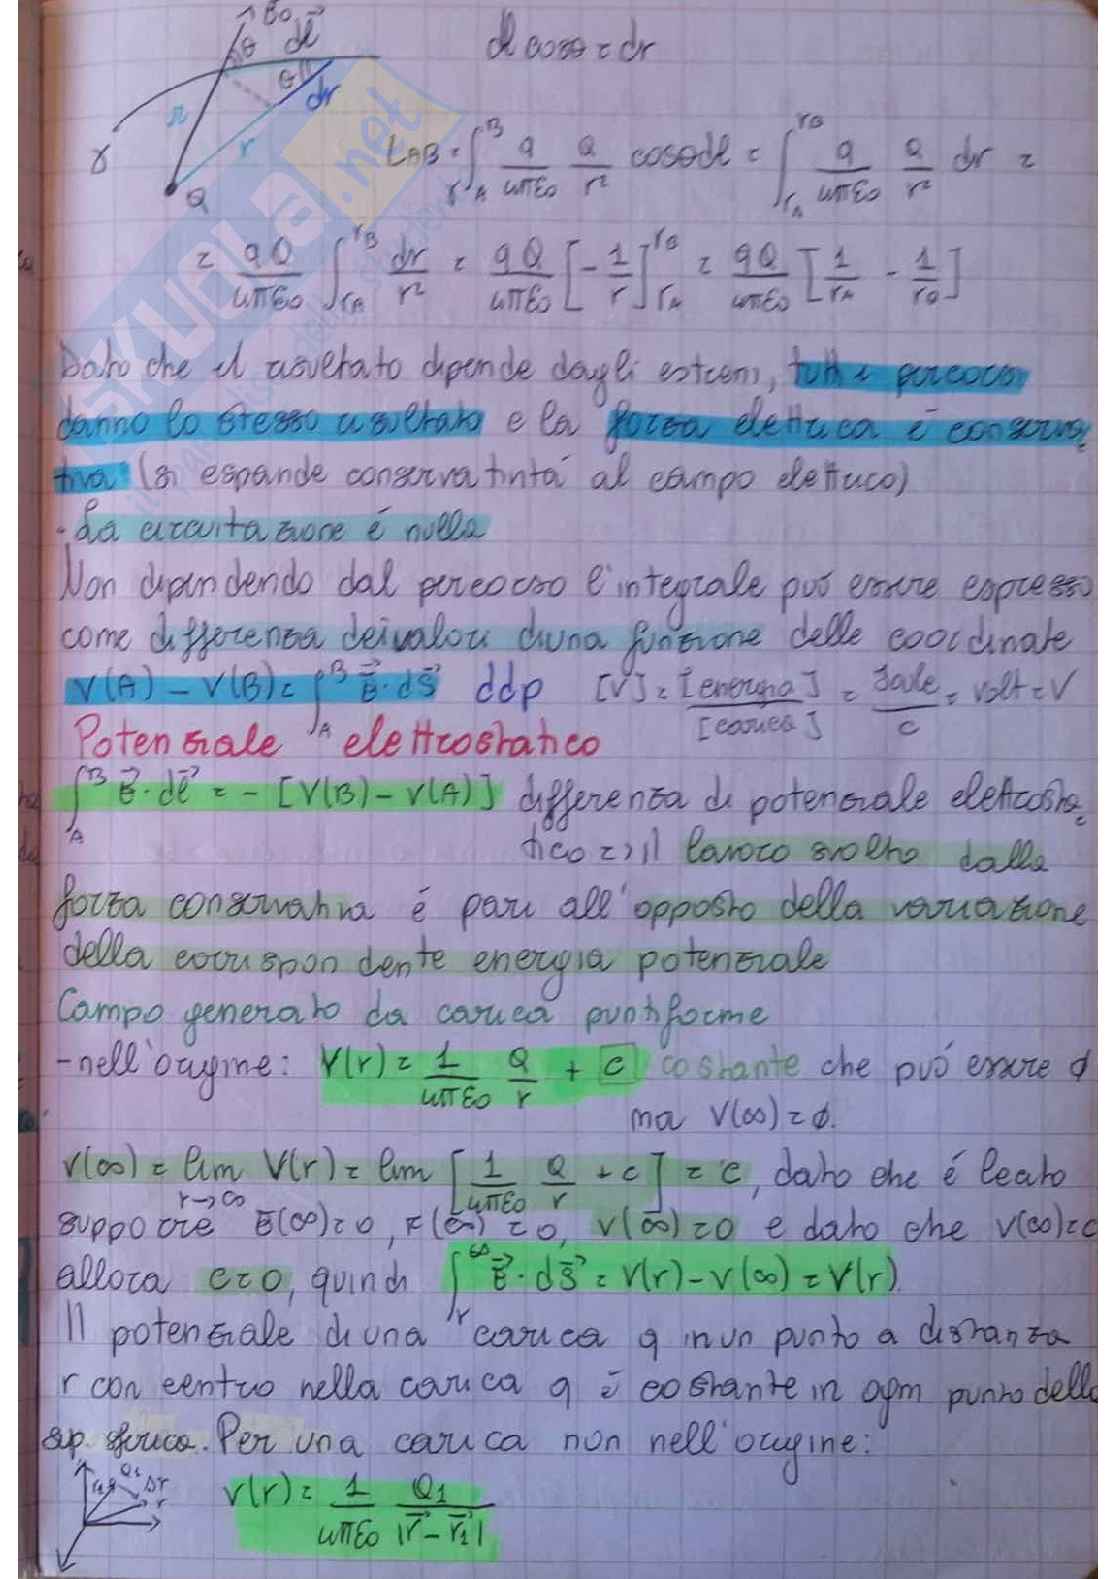 B₀
θ dl⃗ dl cosθ = dr
θ dr
r r
γ
Q
L_AB = ∫_{γ A}^{B} q/(4πε₀) Q/r² cosθdl = ∫_{r_A}^{r_B} q/(4πε₀) Q/r² dr =
= qQ/(4πε₀) ∫_{r_A}^{r_B} dr/r² = qQ/(4πε₀) [-1/r]_{r_A}^{r_B} = qQ/(4πε₀) [1/r_A - 1/r_B]
Dato che il risultato dipende dagli estremi, tutti i percorsi
danno lo stesso risultato e la forza elettrica é conserva
tiva (si espande conservatività al campo elettrico)
- La circuitazione é nulla
Non dipendendo dal percorso l'integrale puó essere espresso
come differenza dei valori di una funzione delle coordinate
V(A) - V(B) = ∫_A^B E⃗·ds⃗ ddp [V] = [energia]/[carica] = Joule/C = Volt = V
Potenziale elettrostatico
∫_A^B E⃗·dl⃗ = - [V(B) - V(A)] differenza di potenziale elettrosta
tico => il lavoro svolto dalla
forza conservativa é pari all'opposto della variazione
della corrispondente energia potenziale
Campo generato da carica puntiforme
- nell'origine: V(r) = 1/(4πε₀) Q/r + c costante che puó essere ∅
ma V(∞) = ∅.
V(∞) = lim_{r→∞} V(r) = lim [1/(4πε₀) Q/r + c] = c, dato che é lecito
supporre E(∞)=0, F(∞)=0, V(∞)=0 e dato che V(∞)=c
allora c=0, quindi ∫_r^∞ E⃗·ds⃗ = V(r) - V(∞) = V(r)
Il potenziale di una carica q in un punto a distanza
r con centro nella carica q é costante in ogni punto della
sup. sferica. Per una carica non nell'origine:
Q₁ Δr
r₁ r
V(r) = 1/(4πε₀) Q₁/|r⃗ - r⃗₁|
SKUOLA.net